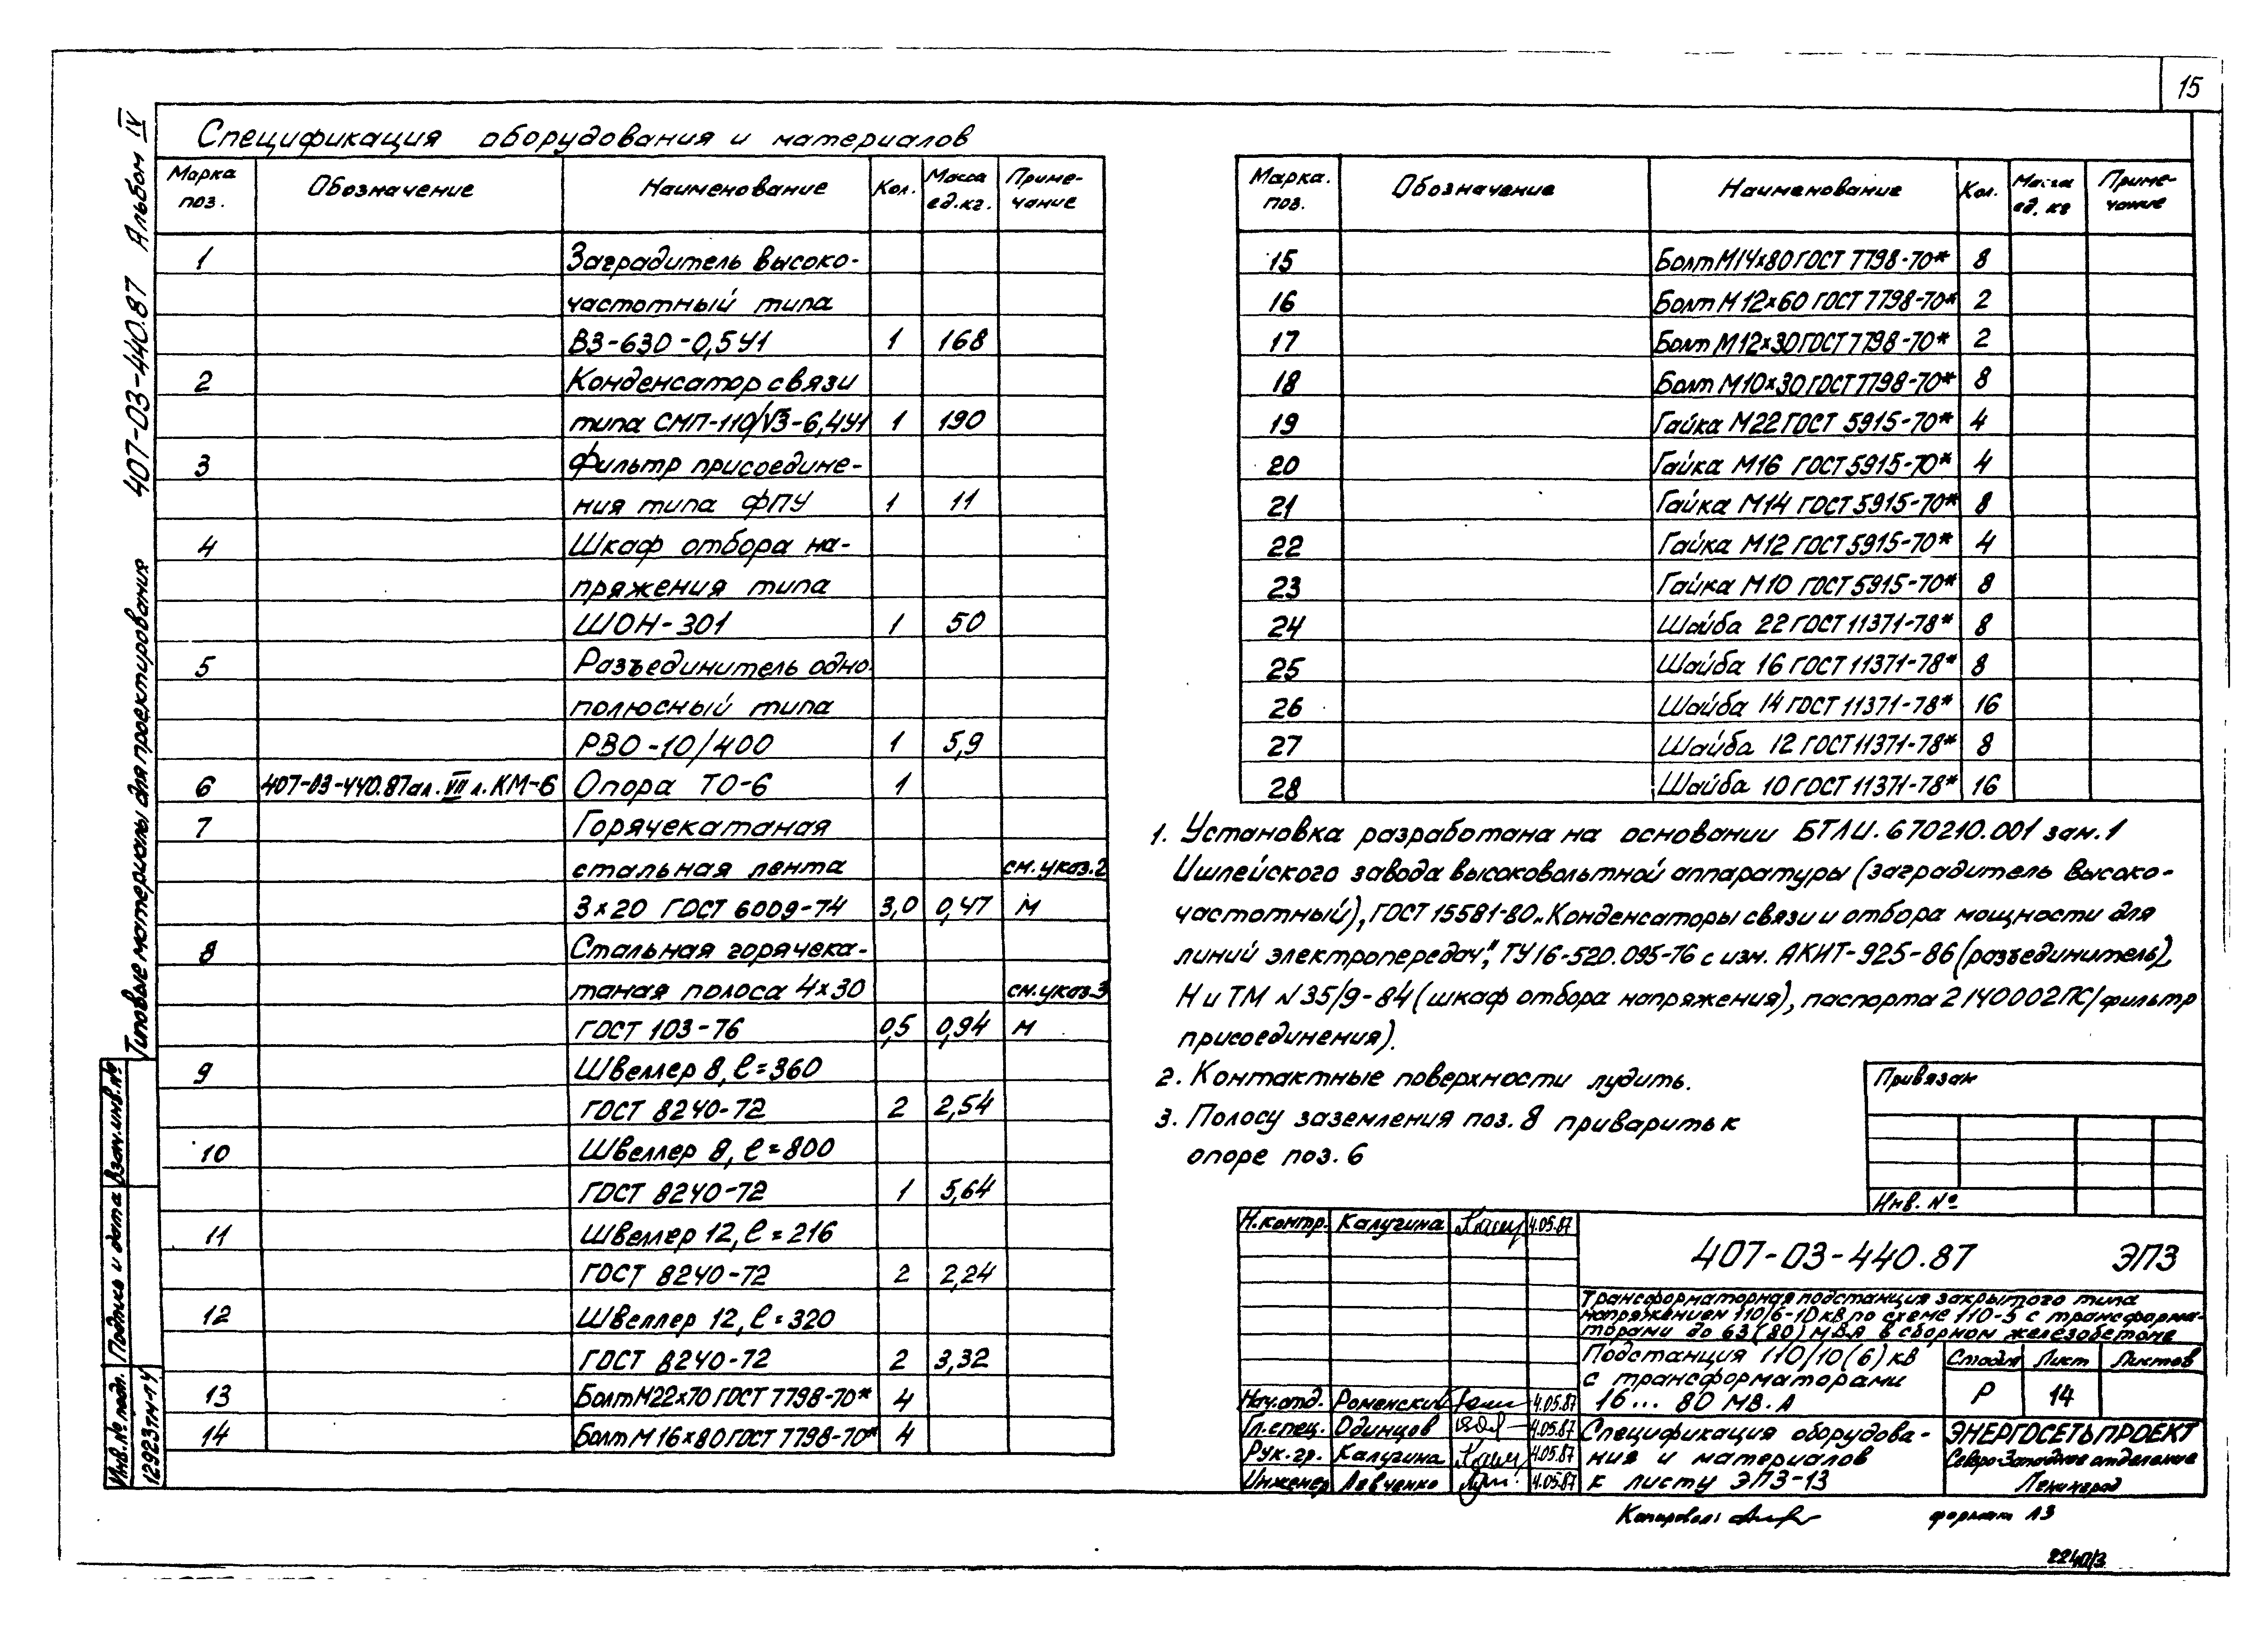 15
Альбом IV
407-03-440.87
Типовые материалы для проектирования
Спецификация оборудования и материалов
Марка поз. Обозначение Наименование Кол. Масса ед.кг. Приме-чание
1 Заградитель высоко-
частотный типа
ВЗ-630-0,5У1 1 168
2 Конденсатор связи
типа СМП-110/√3-6,4У1 1 190
3 Фильтр присоедине-
ния типа ФПУ 1 11
4 Шкаф отбора на-
пряжения типа
ШОН-301 1 50
5 Разъединитель одно-
полюсный типа
РВО-10/400 1 5,9
6 407-03-440.87 ал. VII л. КМ-6 Опора ТО-6 1
7 Горячекатаная
стальная лента см. указ. 2
3×20 ГОСТ 6009-74 3,0 0,47 м
8 Стальная горячека-
таная полоса 4×30 см. указ. 3
ГОСТ 103-76 0,5 0,94 м
9 Швеллер 8, ℓ=360
ГОСТ 8240-72 2 2,54
10 Швеллер 8, ℓ=800
ГОСТ 8240-72 1 5,64
11 Швеллер 12, ℓ=216
ГОСТ 8240-72 2 2,24
12 Швеллер 12, ℓ=320
ГОСТ 8240-72 2 3,32
13 Болт М22×70 ГОСТ 7798-70* 4
14 Болт М16×80 ГОСТ 7798-70* 4
Марка. поз. Обозначение Наименование Кол. Масса ед. кг Приме-чание
15 Болт М14×80 ГОСТ 7798-70* 8
16 Болт М12×60 ГОСТ 7798-70* 2
17 Болт М12×30 ГОСТ 7798-70* 2
18 Болт М10×30 ГОСТ 7798-70* 8
19 Гайка М22 ГОСТ 5915-70* 4
20 Гайка М16 ГОСТ 5915-70* 4
21 Гайка М14 ГОСТ 5915-70* 8
22 Гайка М12 ГОСТ 5915-70* 4
23 Гайка М10 ГОСТ 5915-70* 8
24 Шайба 22 ГОСТ 11371-78* 8
25 Шайба 16 ГОСТ 11371-78* 8
26 Шайба 14 ГОСТ 11371-78* 16
27 Шайба 12 ГОСТ 11371-78* 8
28 Шайба 10 ГОСТ 11371-78* 16
1. Установка разработана на основании БТЛИ.670210.001 зам.1
Ишлейского завода высоковольтной аппаратуры (заградитель высоко-
частотный), ГОСТ 15581-80 „Конденсаторы связи и отбора мощности для
линий электропередач", ТУ16-520.095-76 с изм. АКИТ-925-86 (разъединитель),
Н и ТМ N35/9-84 (шкаф отбора напряжения), паспорта 2140002ПС (фильтр
присоединения).
2. Контактные поверхности лудить.
3. Полосу заземления поз. 8 приварить к
опоре поз. 6
Привязан
Инв. №
Н.контр. Калугина 4.05.87
Нач.отд. Роменский 4.05.87
Гл.спец. Одинцов 4.05.87
Рук.гр. Калугина 4.05.87
Инженер Левченко 4.05.87
407-03-440.87 ЭП3
Трансформаторная подстанция закрытого типа
напряжением 110/6-10кВ по схеме 110-5 с трансформа-
торами до 63(80) МВ.А в сборном железобетоне
Подстанция 110/10(6) кВ
с трансформаторами
16...80 МВ.А
Стадия Лист Листов
Р 14
Спецификация оборудова-
ния и материалов
к листу ЭП3-13
ЭНЕРГОСЕТЬПРОЕКТ
Северо-Западное отделение
Ленинград
Копировал: формат А3
2240/3
Взам.инв.№
Подпись и дата
Инв.№ подл.
12923тм-14